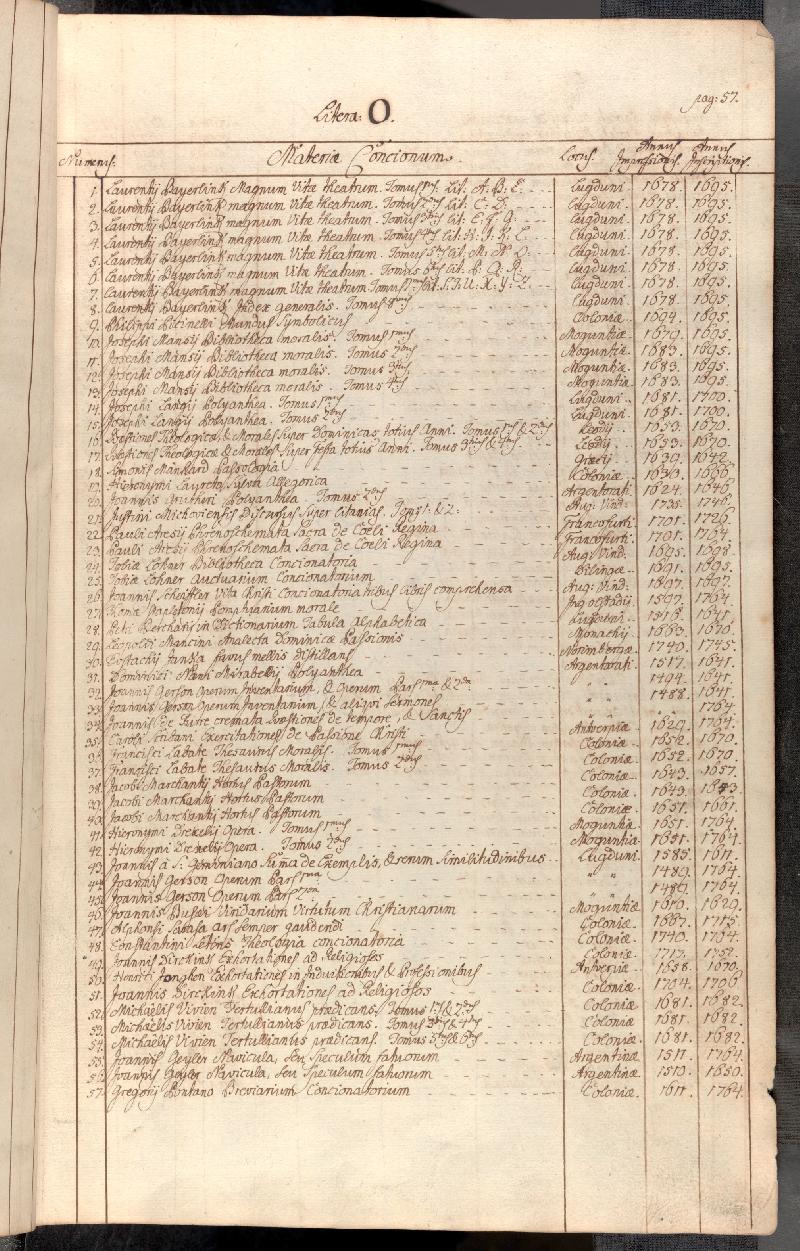 pag: 57.
Litera: O.
Numerus. Materiæ Concionum. Locus. Annus Impressionis. Annus Inscriptionis.
1. Laurentij Bayerlink Magnum Vitæ theatrum. Tomus 1us. Lit. A. B. Lugduni. 1678. 1695.
2. Laurentij Bayerlink magnum Vitæ theatrum. Tomus 2us Lit: C: D: Lugduni. 1678. 1695.
3. Laurentij Bayerlink magnum Vitæ theatrum. Tomus 3us Lit: E. F. G: Lugduni. 1678. 1695.
4. Laurentij Bayerlink magnum Vitæ theatrum. Tomus 4us Lit: H. I. K. L. Lugduni. 1678. 1695.
5. Laurentij Bayerlink magnum Vitæ theatrum. Tomus 5us Lit. M. N. O. Lugduni. 1678. 1695.
6. Laurentij Bayerlink magnum Vitæ theatrum. Tomus 6us Lit: P. Q. R. Lugduni. 1678. 1695.
7. Laurentij Bayerlink magnum Vitæ theatrum Tomus 7us Lit. S. T. U. X. Y. Z. Lugduni. 1678. 1695.
8. Laurentij Bayerlink Index generalis. Tomus 8us Lugduni. 1678. 1695.
9. Philippi Picinelli Mundus Symbolicus Coloniæ. 1694. 1695.
10. Josephi Mansij Bibliotheca moralis. Tomus 1mus Moguntiæ 1679. 1695.
11. Josephi Mansij Bibliotheca moralis. Tomus 2dus Moguntiæ. 1683. 1695.
12. Josephi Mansij Bibliotheca moralis. Tomus 3tius Moguntiæ. 1683. 1695.
13. Josephi Mansij Bibliotheca moralis. Tomus 4tus Moguntiæ. 1683. 1695.
14. Josephi Langij Polyanthea. Tomus 1mus Lugduni. 1681. 1700.
15. Josephi Langij Polyanthea. Tomus 2dus Lugduni. 1681. 1700.
16. Quæstiones Theologicæ, & Morales super Dominicas totius Anni. Tomus 1us & 2dus Leodij. 1653. 1670.
17. Quæstiones Theologicæ & Morales super festa totius Anni. Tomus 3tius & 4tus Leodij. 1653. 1670.
18. Simonis Manhard Passologia Græcij 1639. 1642.
19. Hieronymi Laureti Sylva Allegorica Coloniæ. 1630. 1666.
20. Joannis Gruteri Polyanthea. Tomus 2dus Argentorati. 1624. 1646.
21. Justini Miechoviensis Discursus super Litanias. Tom: 1: & 2: Aug: Vind: 1735. 1748.
22. Pauli Aresij Phrenoschemata Sacra de Coeli Regina Francofurti. 1701. 1726.
23. Pauli Aresij Phrenoschemata Sacra de Coeli Regina Francofurti. 1701. 1764.
24. Tobiæ Lohner Bibliotheca Concionatoria Aug: Vind. 1695. 1698.
25. Tobiæ Lohner Auctuarium Concionatorium Dilingæ. 1691. 1695.
26. Joannis Scheffler Vita Christi Concionatoria tribus libris comprehensa Aug: Vind: 1697. 1697.
27. Thomæ Stapletonij Promptuarium morale Ingolstadij. 1597. 1764.
28. Petri Berchorij in Dictionarium Tabula Alphabetica Lugduni. 1516. 1641.
29. Leopoldi Mancini Analecta Dominicæ Passionis Monachij 1663. 1670.
30. Eustachij Janka favus mellis distillans Norimbergæ. 1740. 1745.
31. Dominici Nani Mirabellij Polyanthea Argentorati. 1517. 1641.
32. Joannis Gerson Operum Inventarium, & Operum Pars 1ma & 2da " " 1494. 1641.
33. Joannis Gerson Operum Inventarium, & aliqui Sermones " " 1488. 1641.
34. Joannis de Turre cremata Quæstiones de tempore, & Sanctis " " 1764.
35. Caroli Stribani Exercitationes de Passione Christi Antverpiæ 1629. 1764.
36. Francisci Labate Thesaurus Moralis. Tomus 1mus Coloniæ. 1652. 1670.
37. Francisci Labate Thesaurus Moralis. Tomus 2dus Coloniæ. 1652. 1670.
38. Jacobi Marchantij Hortus Pastorum Coloniæ. 1643. 1657.
39. Jacobi Marchantij Hortus Pastorum Coloniæ. 1643. 1643.
40. Jacobi Marchantij Hortus Pastorum Coloniæ. 1651. 1661.
41. Hieronymi Drexelij Opera. Tomus 1mus Moguntiæ. 1651. 1764.
42. Hieronymi Drexelij Opera. Tomus 2dus Moguntiæ 1651. 1764.
43. Joannis à S: Geminiano Suma de Exemplis, & rerum Similitudinibus Lugduni. 1585. 1611.
44. Joannis Gerson Operum Pars 1ma " " 1489. 1764.
45. Joannis Gerson Operum Pars 2da " " 1489. 1764.
46. Joannis Busæi Viridarium Virtutum Christianarum Moguntiæ 1610. 1629.
47. Alphonsi Sarasa ars semper gaudendi Coloniæ. 1667. 1715.
48. Constantini Letins Theologia concionatoria Coloniæ. 1740. 1764.
49. Joannis Dirckins Exhortationes ad Religiosos Coloniæ. 1717. 1752.
50. Henrici Jonghen Exhortationes in Induitionibus & Professionibus Antverpiæ 1658. 1690.
51. Joannis Dirckins Exhortationes ad Religiosos Coloniæ. 1704. 1706.
52. Michaëlis Vivien Tertullianus prædicans. Tomus 1us & 2dus Coloniæ. 1681. 1682.
53. Michaëlis Vivien Tertullianus prædicans. Tomus 3tius & 4tus Coloniæ. 1681. 1682.
54. Michaëlis Vivien Tertullianus prædicans. Tomus 5tus & 6tus Coloniæ. 1681. 1682.
55. Joannis Geyler Navicula, seu Speculum fatuorum Argentinæ 1511. 1764.
56. Joannis Geyler Navicula, seu Speculum fatuorum Argentinæ. 1510. 1650.
57. Gregorij Pontano Breviarium Concionatorium Coloniæ. 1611. 1764.